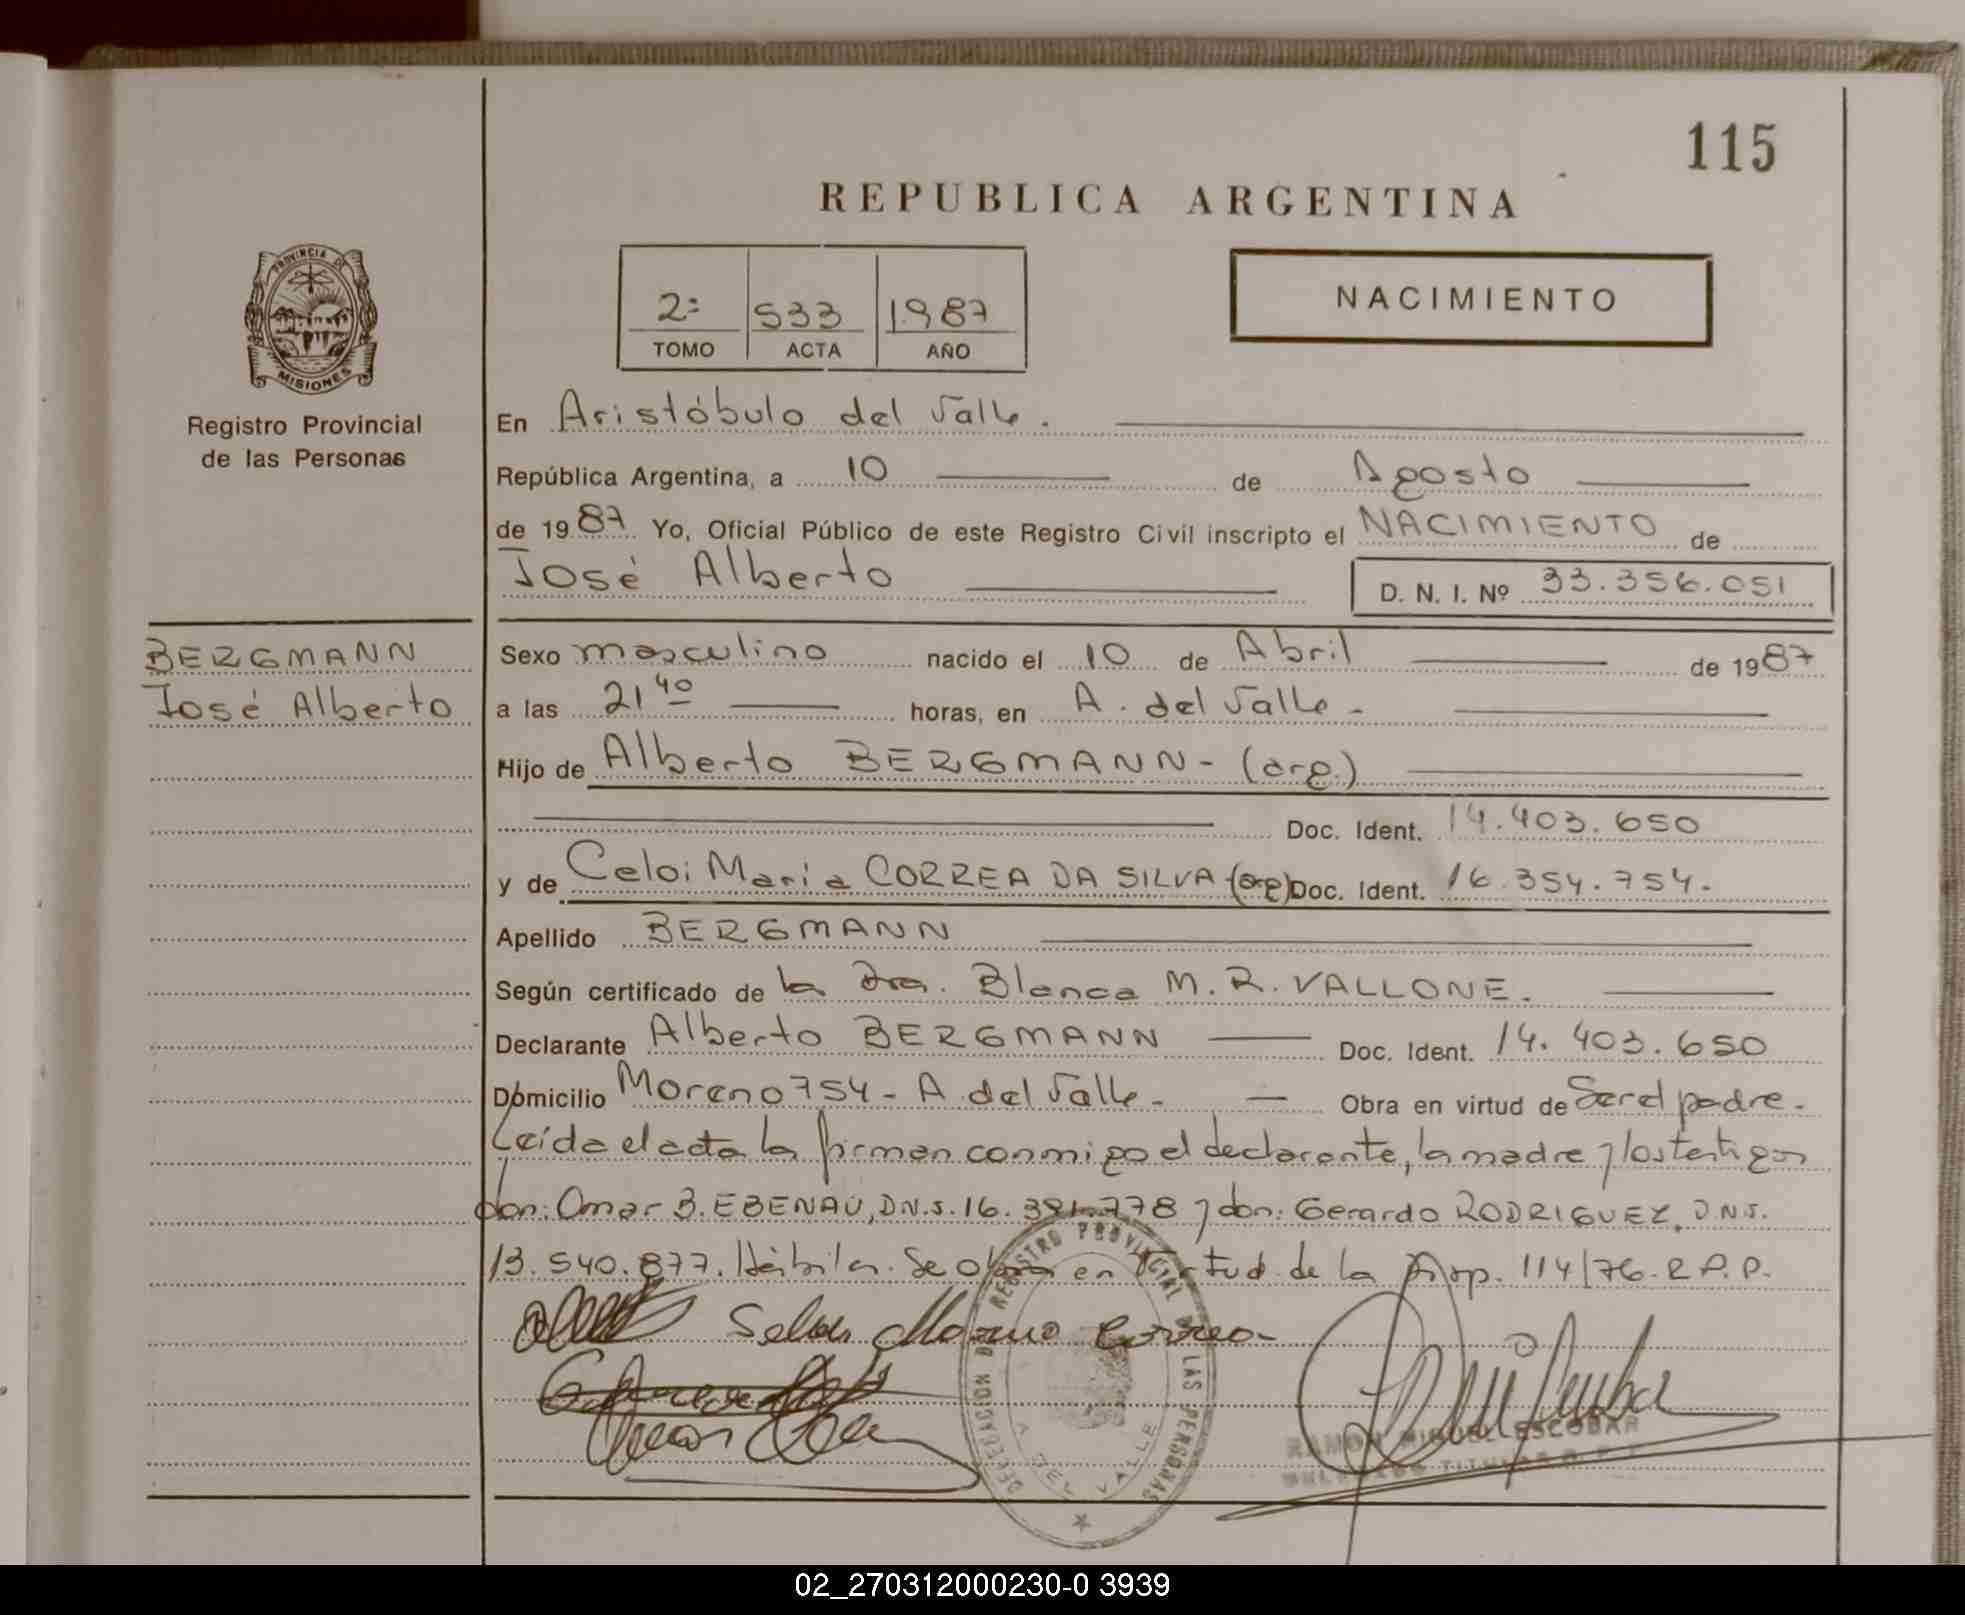 115
REPUBLICA ARGENTINA
PROVINCIA DE
MISIONES
Registro Provincial
de las Personas
2º 533 1987
TOMO ACTA AÑO
NACIMIENTO
En Aristóbulo del Valle.
República Argentina, a 10 de Agosto
de 1987 Yo, Oficial Público de este Registro Civil inscripto el NACIMIENTO de
José Alberto D. N. I. Nº 33.356.051
BERGMANN
José Alberto
Sexo masculino nacido el 10 de Abril de 1987
a las 21 40 horas, en A. del Valle-
Hijo de Alberto BERGMANN- (arg.)
Doc. Ident. 14.403.650
y de Celoi Maria CORREA DA SILVA (arg) Doc. Ident. 16.354.754.
Apellido BERGMANN
Según certificado de la Dra. Blanca M. R. VALLONE.
Declarante Alberto BERGMANN Doc. Ident. 14.403.650
Domicilio Moreno 754- A. del Valle- Obra en virtud de Ser el padre.
Leída el acta la firman conmigo el declarante, la madre y los testigos
don: Omar B. EBENAU, D.N.I. 16. y don: Gerardo RODRIGUEZ, D.N.I.
13.540.877. Hábiles. Se obra en virtud de la Disp. 114/76-R.P.P.
Correa
DELEGACION DE REGISTRO PROVINCIAL DE LAS PERSONAS
A. DEL VALLE
RAMON MIGUEL ESCOBAR
TITULAR
02_270312000230-0 3939